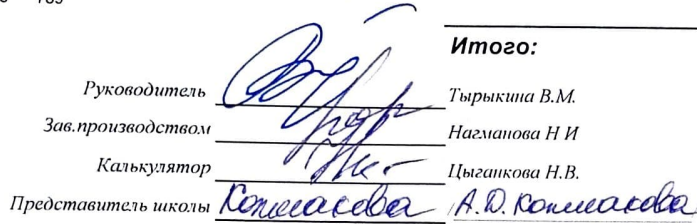 Итого:
Руководитель Тырыкина В.М.
Зав.производством Нагманова Н И
Калькулятор Цыганкова Н.В.
Представитель школы